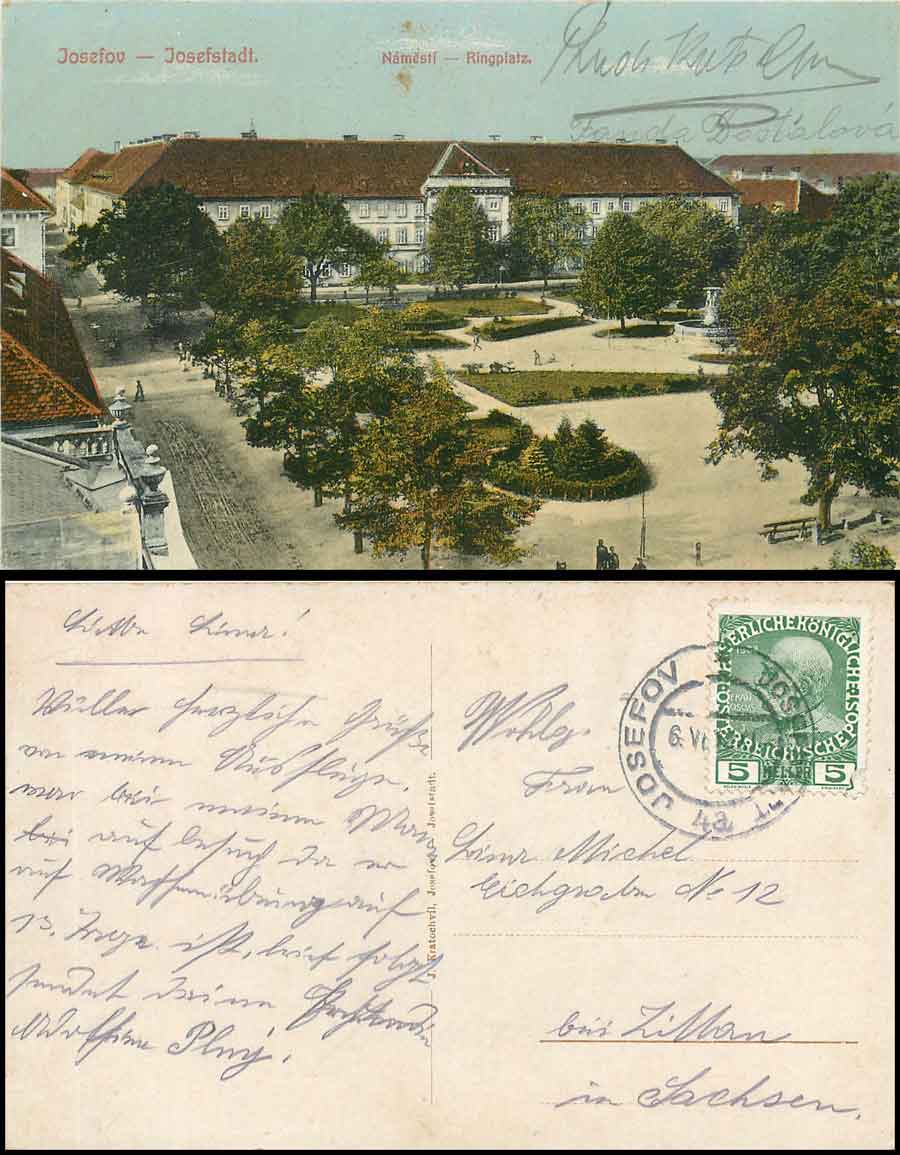 Josefov — Josefstadt.
Náměstí — Ringplatz.
Fanda Dostálová
Liebe Lina!
Herzliche Grüße
von meinem Ausfluge,
war bei meinem Man
auf besuch da er
auf Waffenübung auf
13. Tage ist, brief folgt
sendet deine
Plnj.
J. Kratochvíl, Josefov — Josefstadt.
Wohlg.
Frau
Lina Michel
Eichgraben No 12
bei Zittau
in Sachsen.
KAISERLICHE KÖNIGLICHE
ÖSTERREICHISCHE POST
5 HELLER 5
JOSEFOV
6. VI.
4a